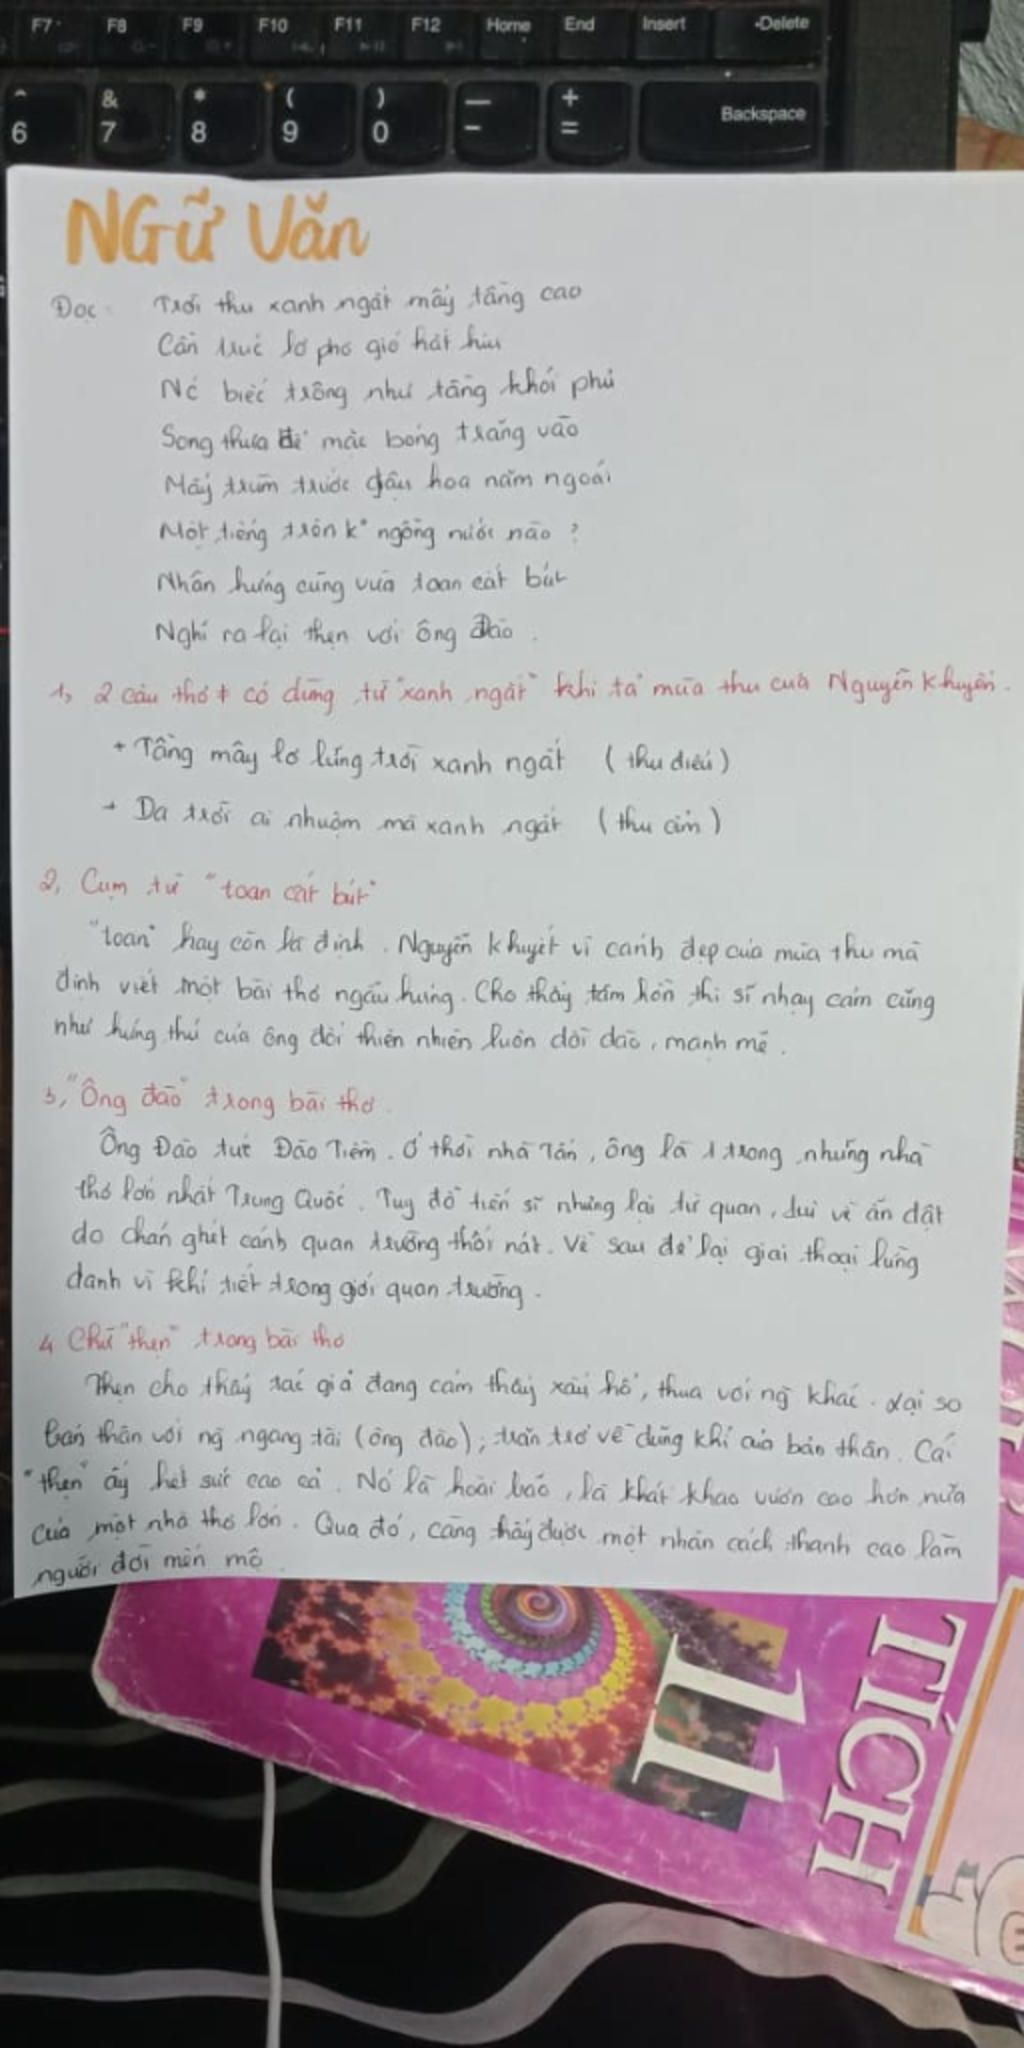 F7 F8 F9 F10 F11 F12 Home End Insert Delete
^ & * ( ) — +
6 7 8 9 0 - = Backspace
NGữ Văn
Đọc: Trời thu xanh ngắt mấy tầng cao
Cần trúc lơ phơ gió hắt hiu
Nc biếc trông như tầng khói phủ
Song thưa để mặc bóng trăng vào
Mấy trùm trước giậu hoa năm ngoái
Một tiếng trên k° ngỗng nước nào?
Nhân hứng cũng vừa toan cất bút
Nghĩ ra lại thẹn với ông Đào.
1, 2 câu thơ ≠ có dùng từ "xanh ngắt" khi tả mùa thu của Nguyễn Khuyến.
+ Tầng mây lơ lửng trời xanh ngắt (thu điếu)
+ Da trời ai nhuộm mà xanh ngắt (thu ẩm)
2, Cụm từ "toan cất bút"
"toan" hay còn là định. Nguyễn Khuyết vì cảnh đẹp của mùa thu mà
định viết một bài thơ ngẫu hứng. Cho thấy tâm hồn thi sĩ nhạy cảm cũng
như hứng thú của ông đối thiên nhiên luôn dồi dào, mạnh mẽ.
3, "Ông đào" trong bài thơ.
Ông Đào tức Đào Tiềm. Ở thời nhà Tấn, ông là 1 trong những nhà
thơ lớn nhất Trung Quốc. Tuy đỗ tiến sĩ nhưng lại từ quan, lui về ẩn dật
do chán ghét cảnh quan trường thối nát. Về sau để lại giai thoại lừng
danh vì khí tiết trong giới quan trường.
4 Chữ "thẹn" trong bài thơ
Thẹn cho thấy tác giả đang cảm thấy xấu hổ, thua với ng̀ khác. Lại so
bản thân với ng̀ ngang tài (ông đào); trăn trở về dũng khí của bản thân. Cái
"thẹn" ấy hết sức cao cả. Nó là hoài bão, là khát khao vươn cao hơn nữa
của một nhà thơ lớn. Qua đó, càng thấy được một nhân cách thanh cao làm
người đời mến mộ.
11
TÍCH